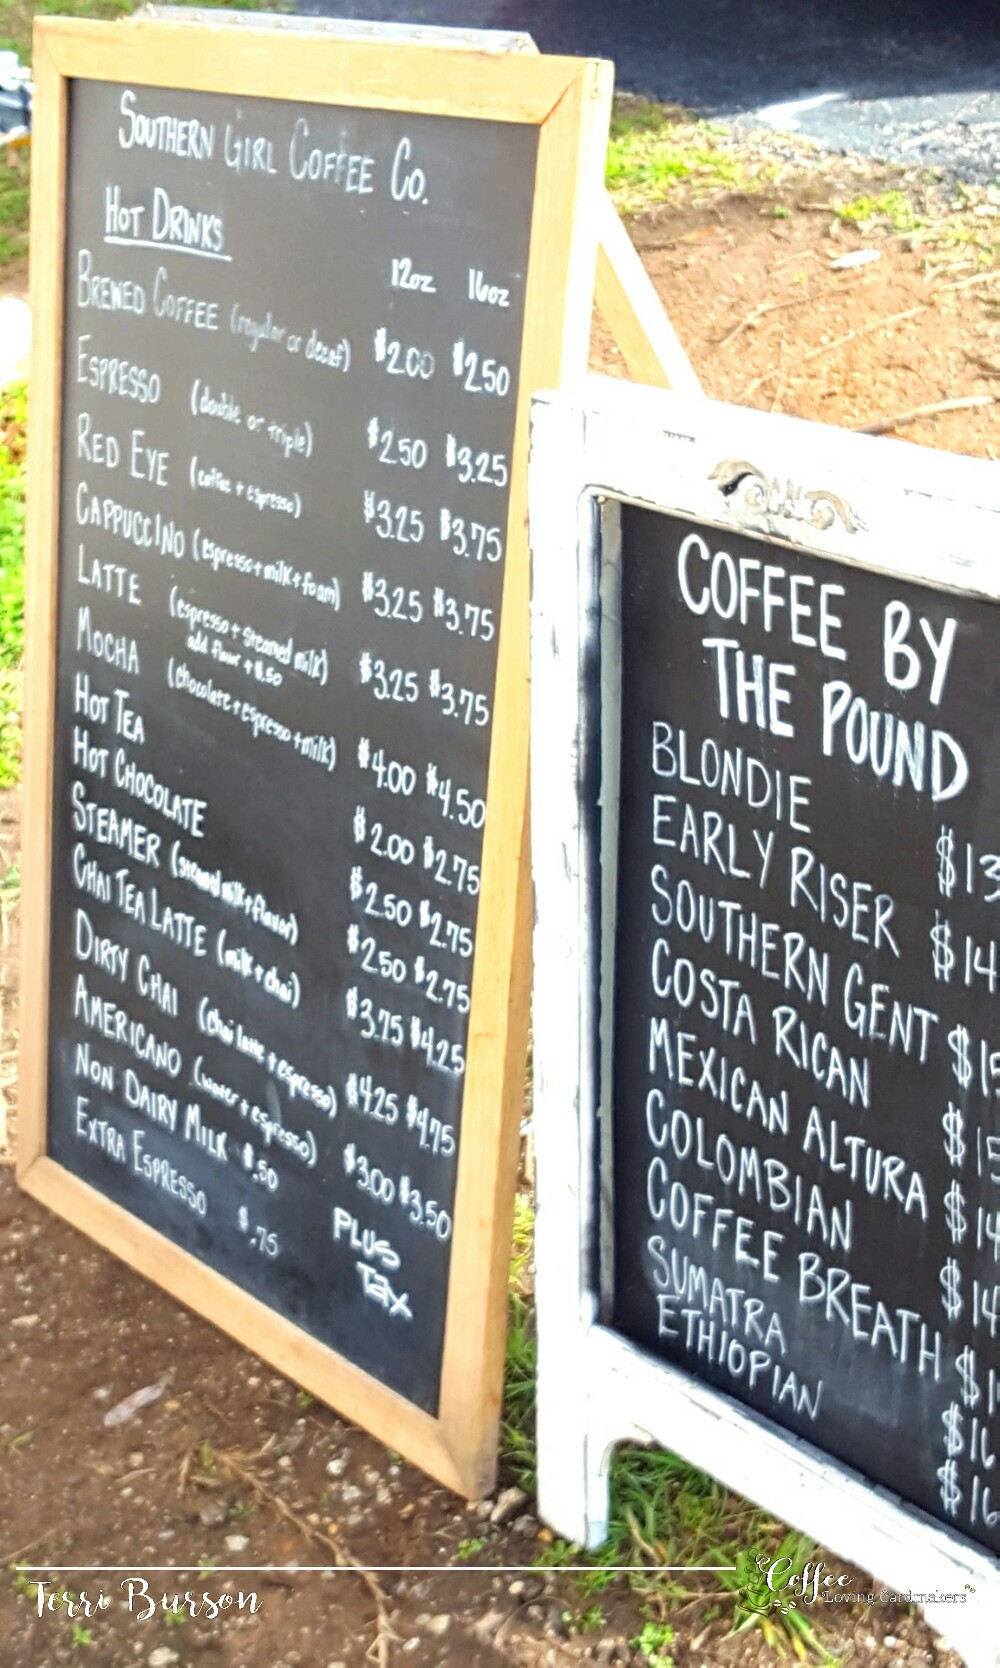 SOUTHERN GIRL COFFEE CO.
HOT DRINKS
12oz 16oz
BREWED COFFEE (regular or decaf) $2.00 $2.50
ESPRESSO (double or triple) $2.50 $3.25
RED EYE (coffee + espresso) $3.25 $3.75
CAPPUCCINO (espresso + milk + foam) $3.25 $3.75
LATTE (espresso + steamed milk) $3.25 $3.75
add flavor + $.50
MOCHA (chocolate + espresso + milk) $4.00 $4.50
HOT TEA $2.00 $2.75
HOT CHOCOLATE $2.50 $2.75
STEAMER (steamed milk + flavor) $2.50 $2.75
CHAI TEA LATTE (milk + chai) $3.75 $4.25
DIRTY CHAI (chai latte + espresso) $4.25 $4.75
AMERICANO (water + espresso) $3.00 $3.50
NON DAIRY MILK $.50
EXTRA ESPRESSO $.75
PLUS
TAX
COFFEE BY
THE POUND
BLONDIE $13
EARLY RISER $14
SOUTHERN GENT $15
COSTA RICAN $15
MEXICAN ALTURA $14
COLOMBIAN $14
COFFEE BREATH $1
SUMATRA $16
ETHIOPIAN $16
Terri Burson
Coffee
Loving Cardmakers